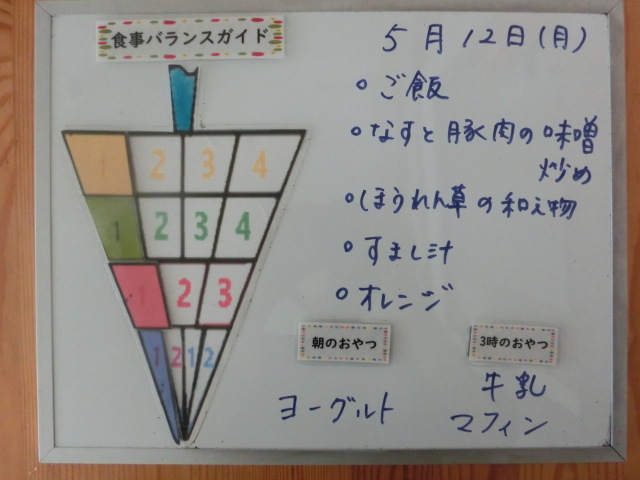 食事バランスガイド
5月12日(月)
○ご飯
○なすと豚肉の味噌
炒め
○ほうれん草の和え物
○すまし汁
○オレンジ
1 2 3 4
1 2 3 4
1 2 3
1 2 1 2
朝のおやつ
ヨーグルト
3時のおやつ
牛乳
マフィン